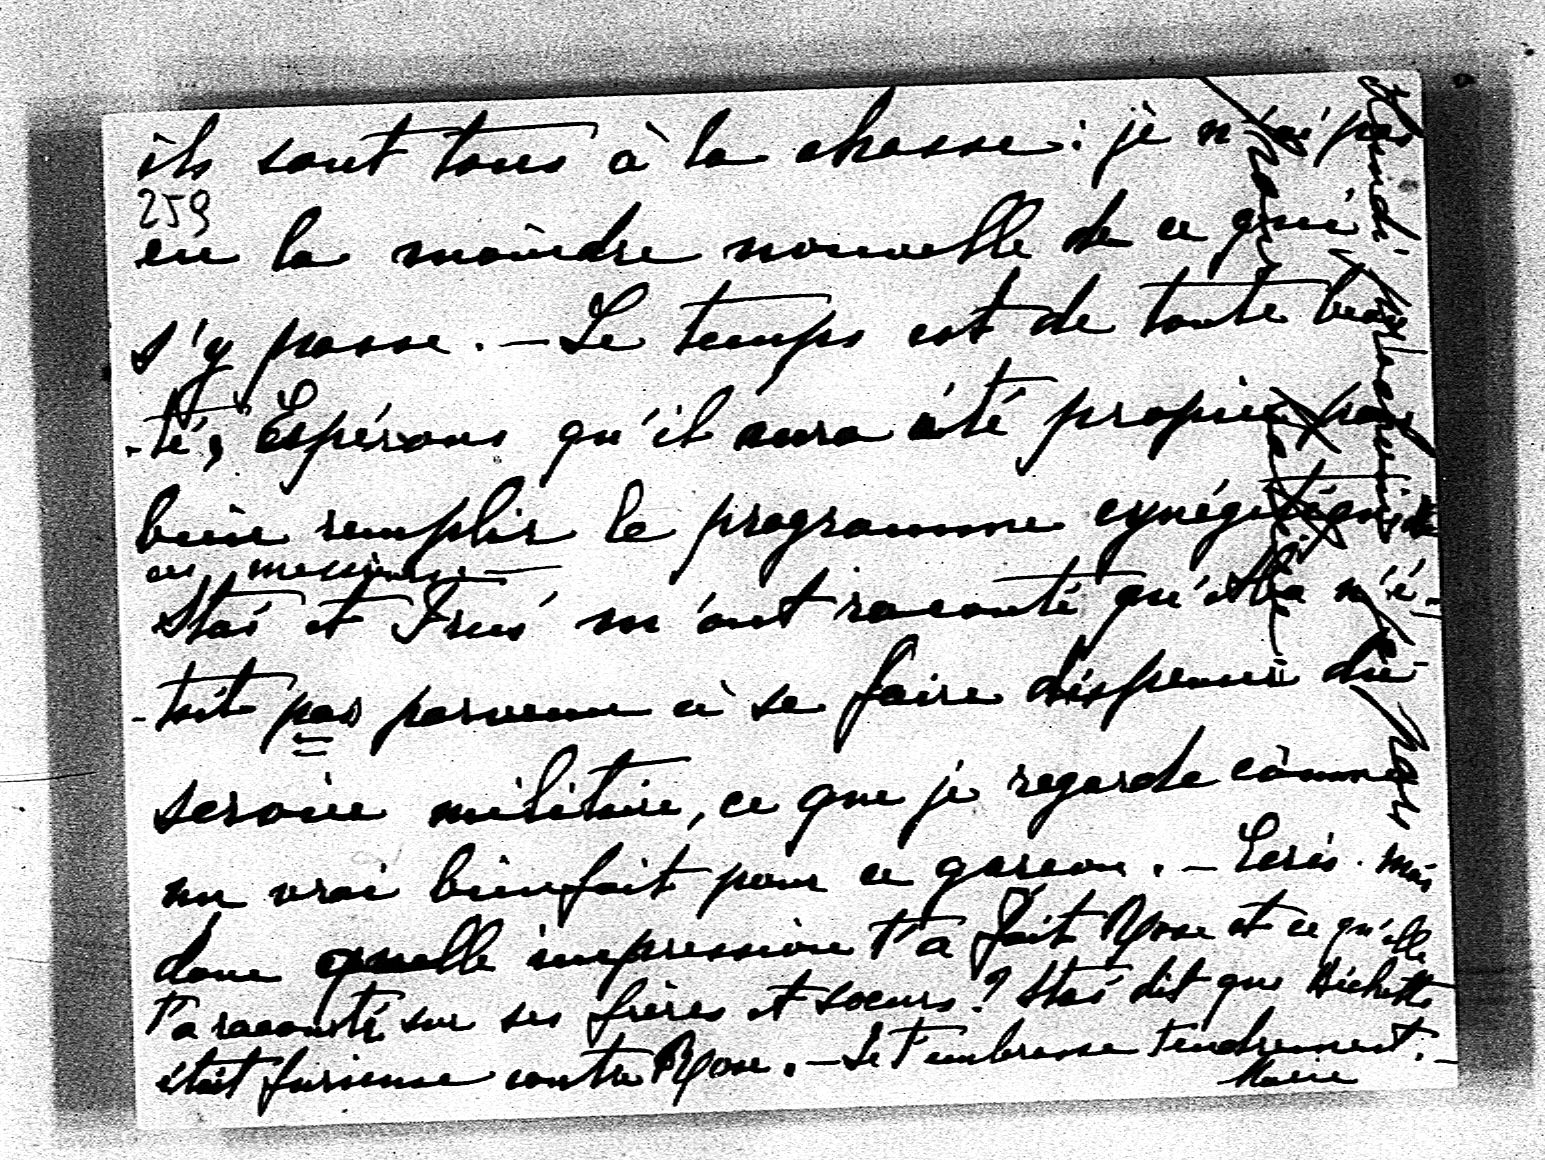 ils sont tous à la chasse : je n'ai pas
259
eu la moindre nouvelle de ce qui
s'y passe. – Le temps est de toute beau
-té, Espérons qu'il aura été propice pour
bien remplir le programme cynégétique de
ces messieurs. –
Stas et m'ont raconté qu' n'é-
-tait pas parvenu à se faire dispenser du
service militaire, ce que je regarde comme
un vrai bienfait pour ce garçon. – Ecris-moi
donc quelle impression t'a fait Rose et ce qu'elle
t'a raconté sur ses frères et soeurs ? Stas dit que Bichette
était furieuse contre Rose. – Je t'embrasse tendrement. –
Marie